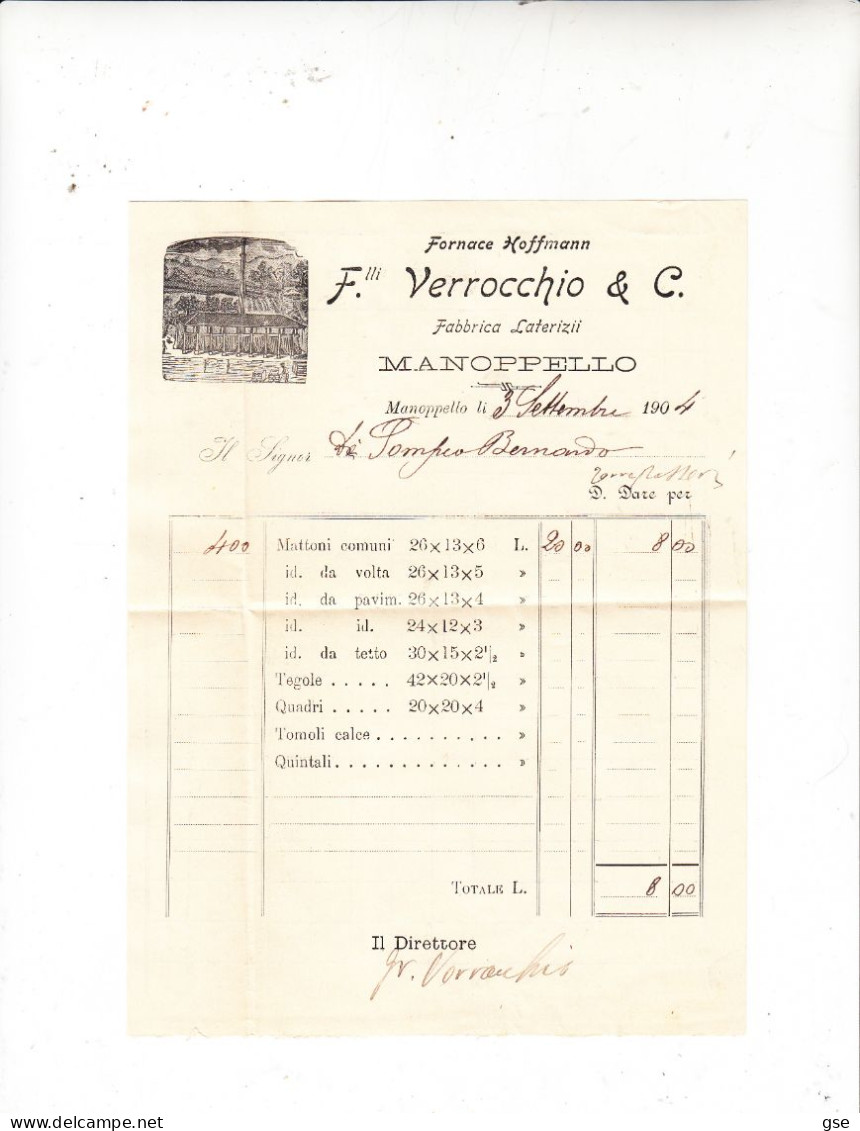 Fornace Hoffmann
F.lli Verrocchio & C.
Fabbrica Laterizii
MANOPPELLO
Manoppello li 3 Settembre 1904
Il Signor De Pompeo Bernardo
D. Dare per
400 Mattoni comuni 26×13×6 L. 20 00 8 00
id. da volta 26×13×5 »
id. da pavim. 26×13×4 »
id. id. 24×12×3 »
id. da tetto 30×15×2 1/2 »
Tegole ..... 42×20×2 1/2 »
Quadri ..... 20×20×4 »
Tomoli calce .......... »
Quintali ............. »
TOTALE L. 8 00
Il Direttore
Delcampe.net
gse